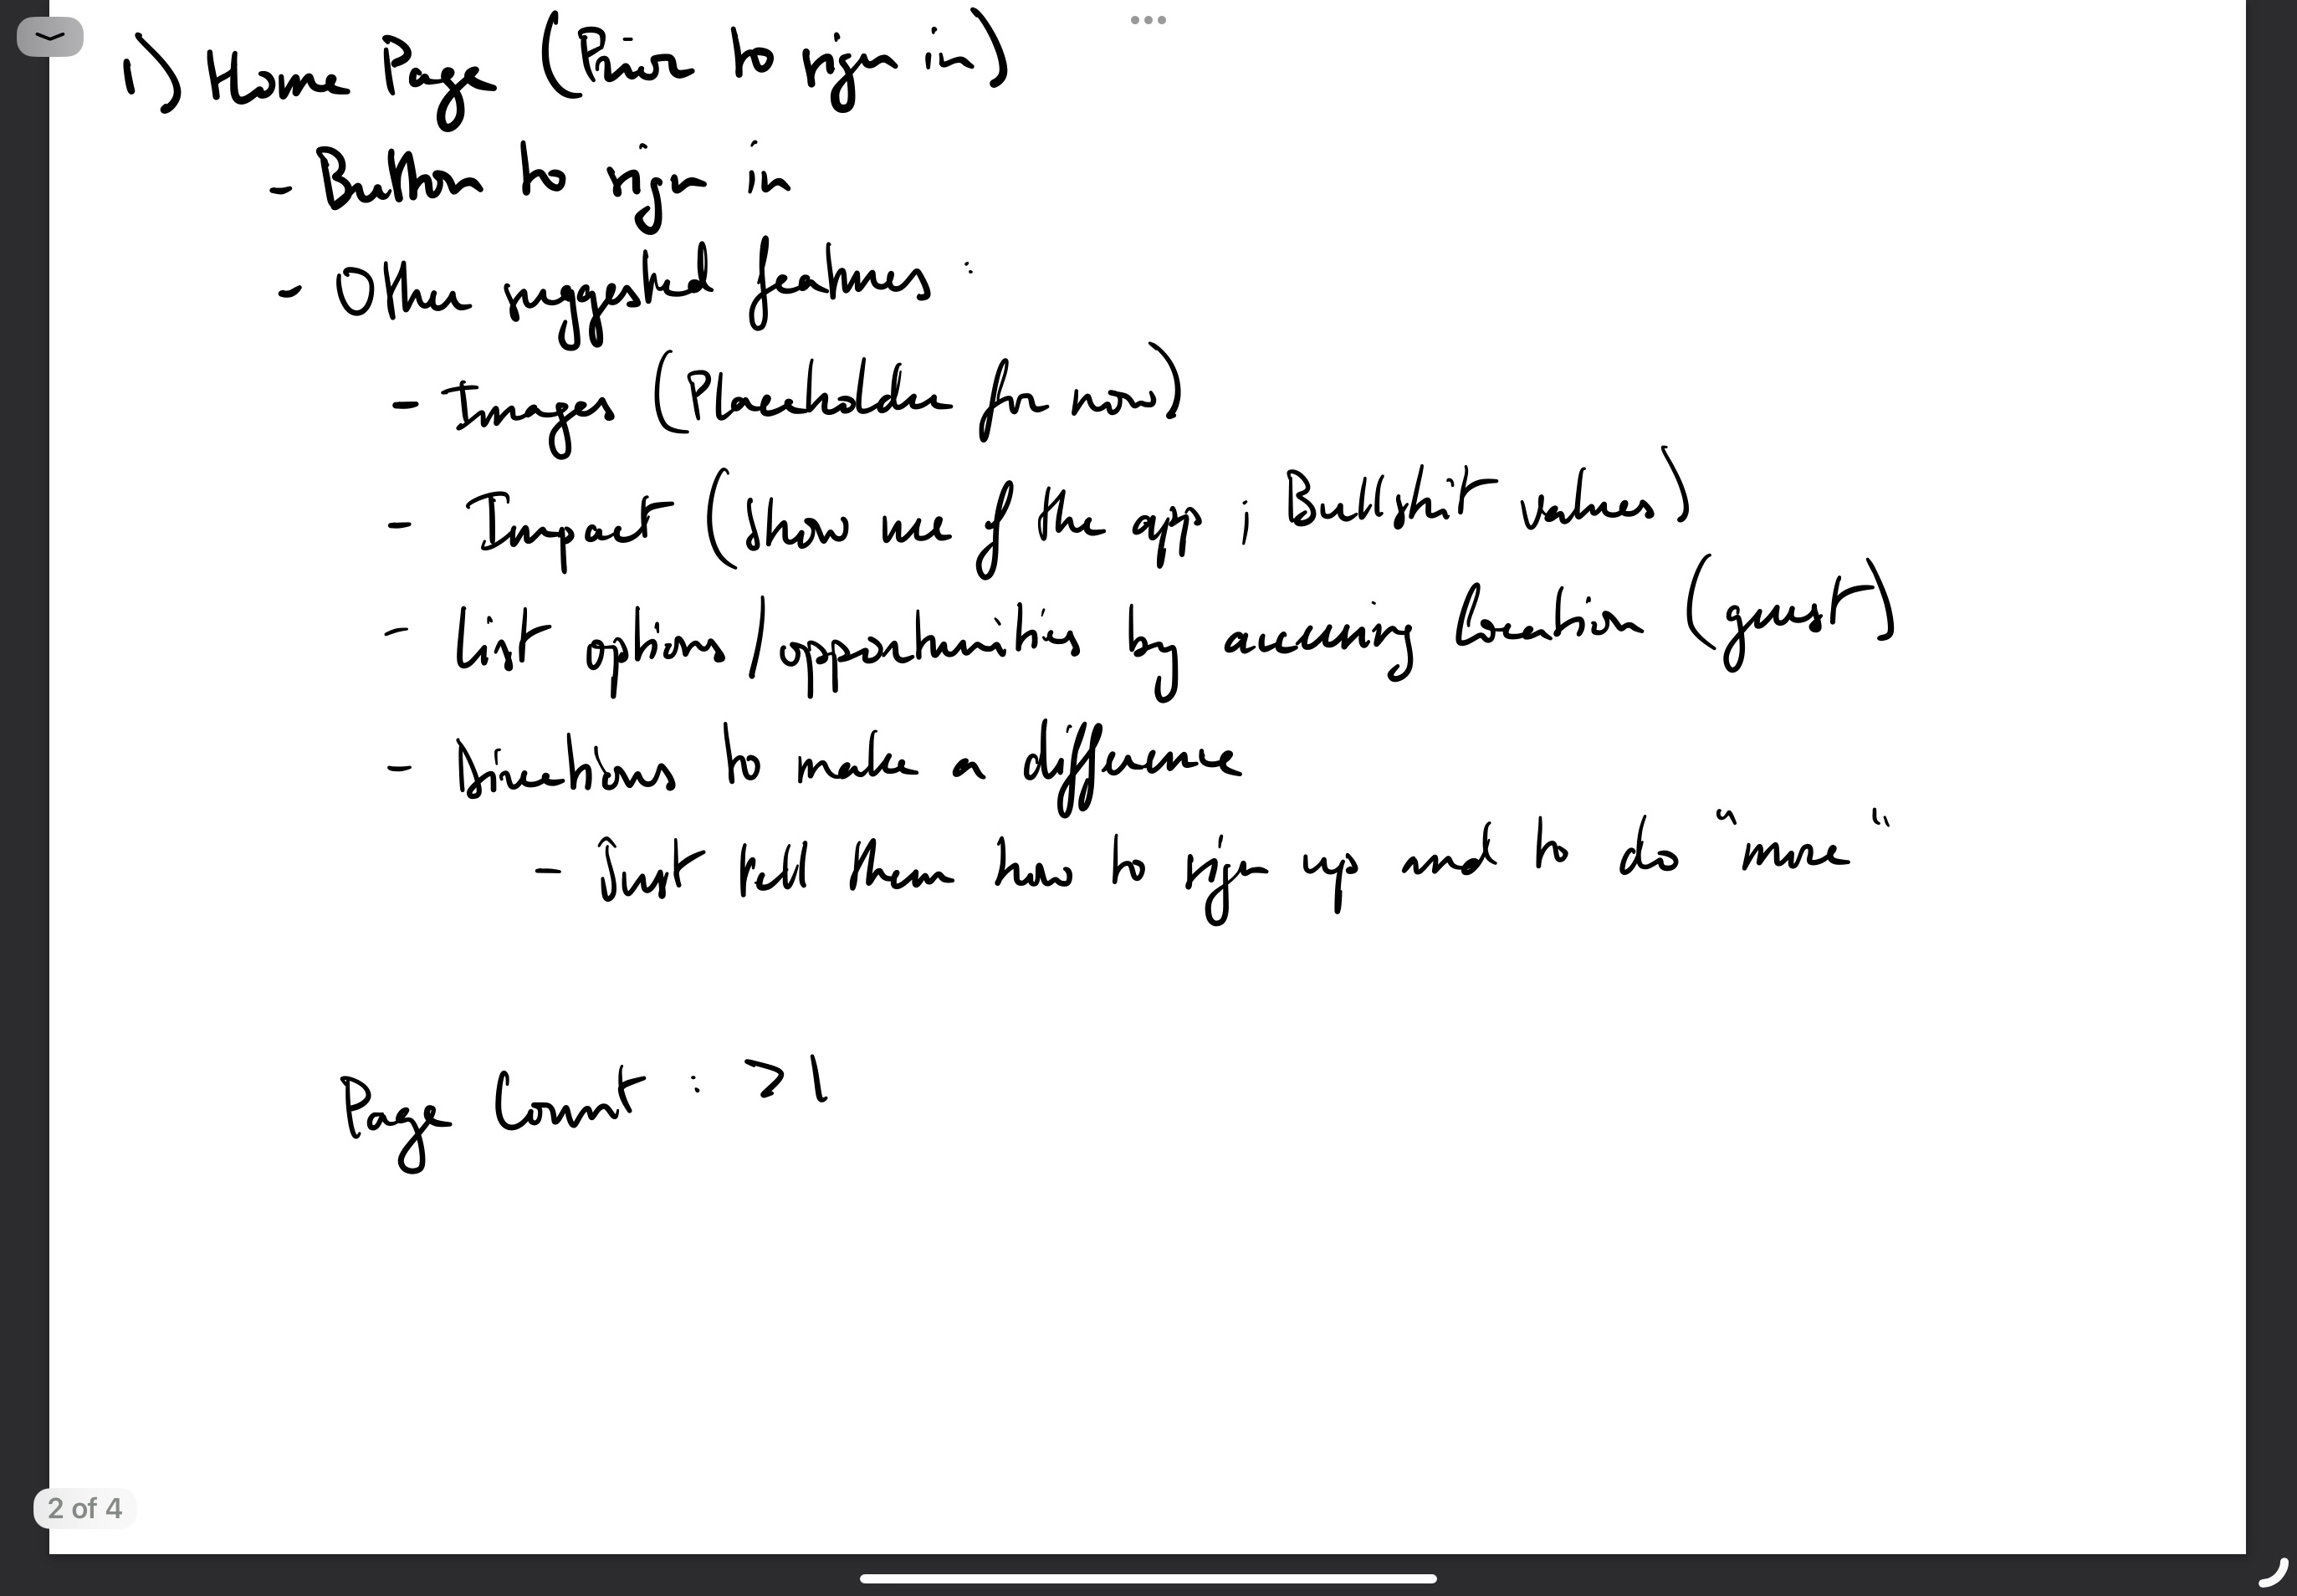 1) Home Page (Prior to sign in)
- Button to sign in
- Other suggested features:
- Images (Placeholder for now)
- Impact (show use of the app; Bullshit values)
- List options/opportunities by accessing location (guest)
- Directions to make a difference
- Just tell them how to sign up and to do "more"
Page Count: >1
2 of 4